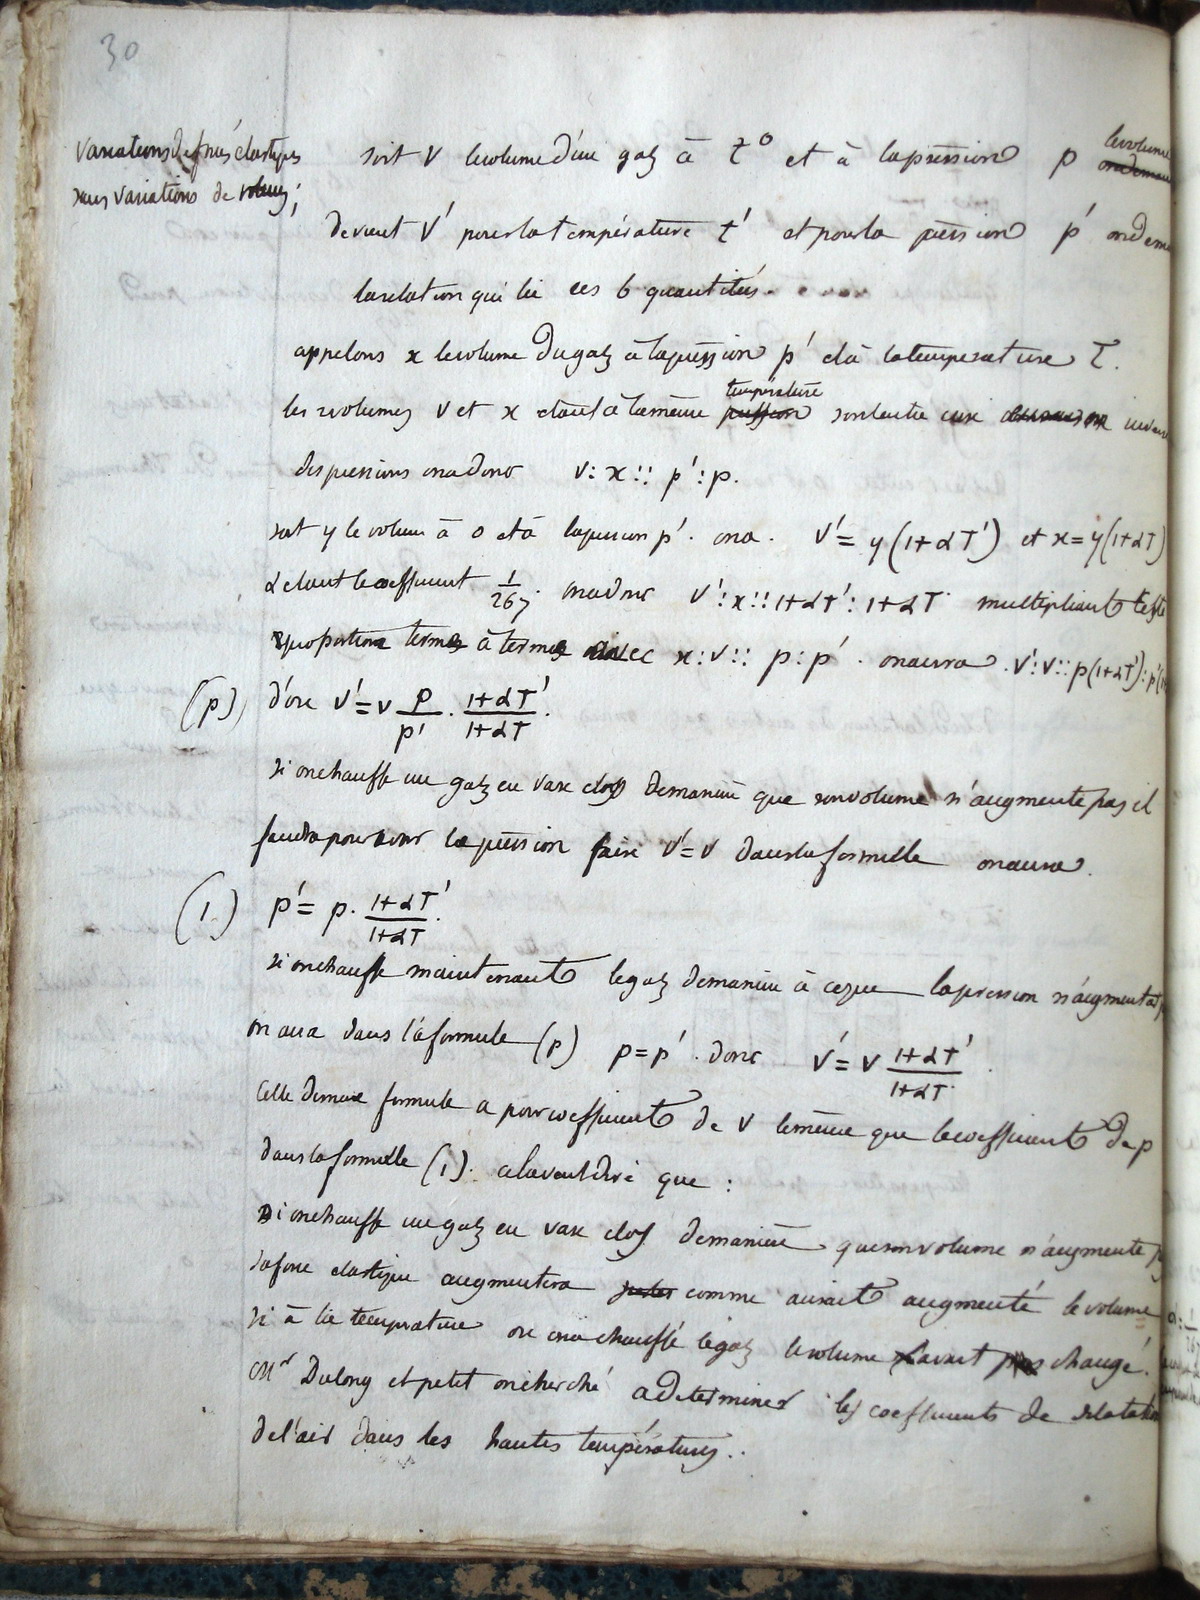 30
variations de forces élastiques
sans variations de volume;
soit v le volume d'un gaz à t° et à la pression p le volume
devient v' pour la température t' et pour la pression p' on dem
la relation qui lie ces 6 quantités.
appelons x le volume du gaz à la pression p' et à la température T.
les volumes v et x étant à la même température sont entre eux
des pressions on a donc v : x :: p' : p.
soit y le volume à 0 et à la pression p'. on a. v' = y(1+αT') et x = y(1+αT)
α étant le coefficient 1/267. on a donc v' : x :: 1+αT' : 1+αT multipliant cette
proportion termes à termes avec x : v :: p : p'. on aura v' : v :: p(1+αT') : p'(1
(p) d'où v' = v p/p' . 1+αT'/1+αT.
si on chauffe un gaz en vase clos de manière que son volume n'augmente pas il
faudra pour avoir la pression faire v' = v dans la formule on aura.
(1.) p' = p. 1+αT'/1+αT.
si on chauffe maintenant le gaz de manière à ce que la pression n'augmentat p
on aura dans la formule (p) p = p'. donc v' = v 1+αT'/1+αT.
Cette dernière formule a pour coefficient de v le même que le coefficient de p
dans la formule (1). cela veut dire que :
si on chauffe un gaz en vase clos de manière que son volume n'augmente p
sa force élastique augmentera comme aurait augmenté le volume
si à la température où on a chauffé le gaz le volume avait changé.
Mr Dulong et petit on cherché a determiner les coefficients de dilatation
de l'air dans les hautes températures..